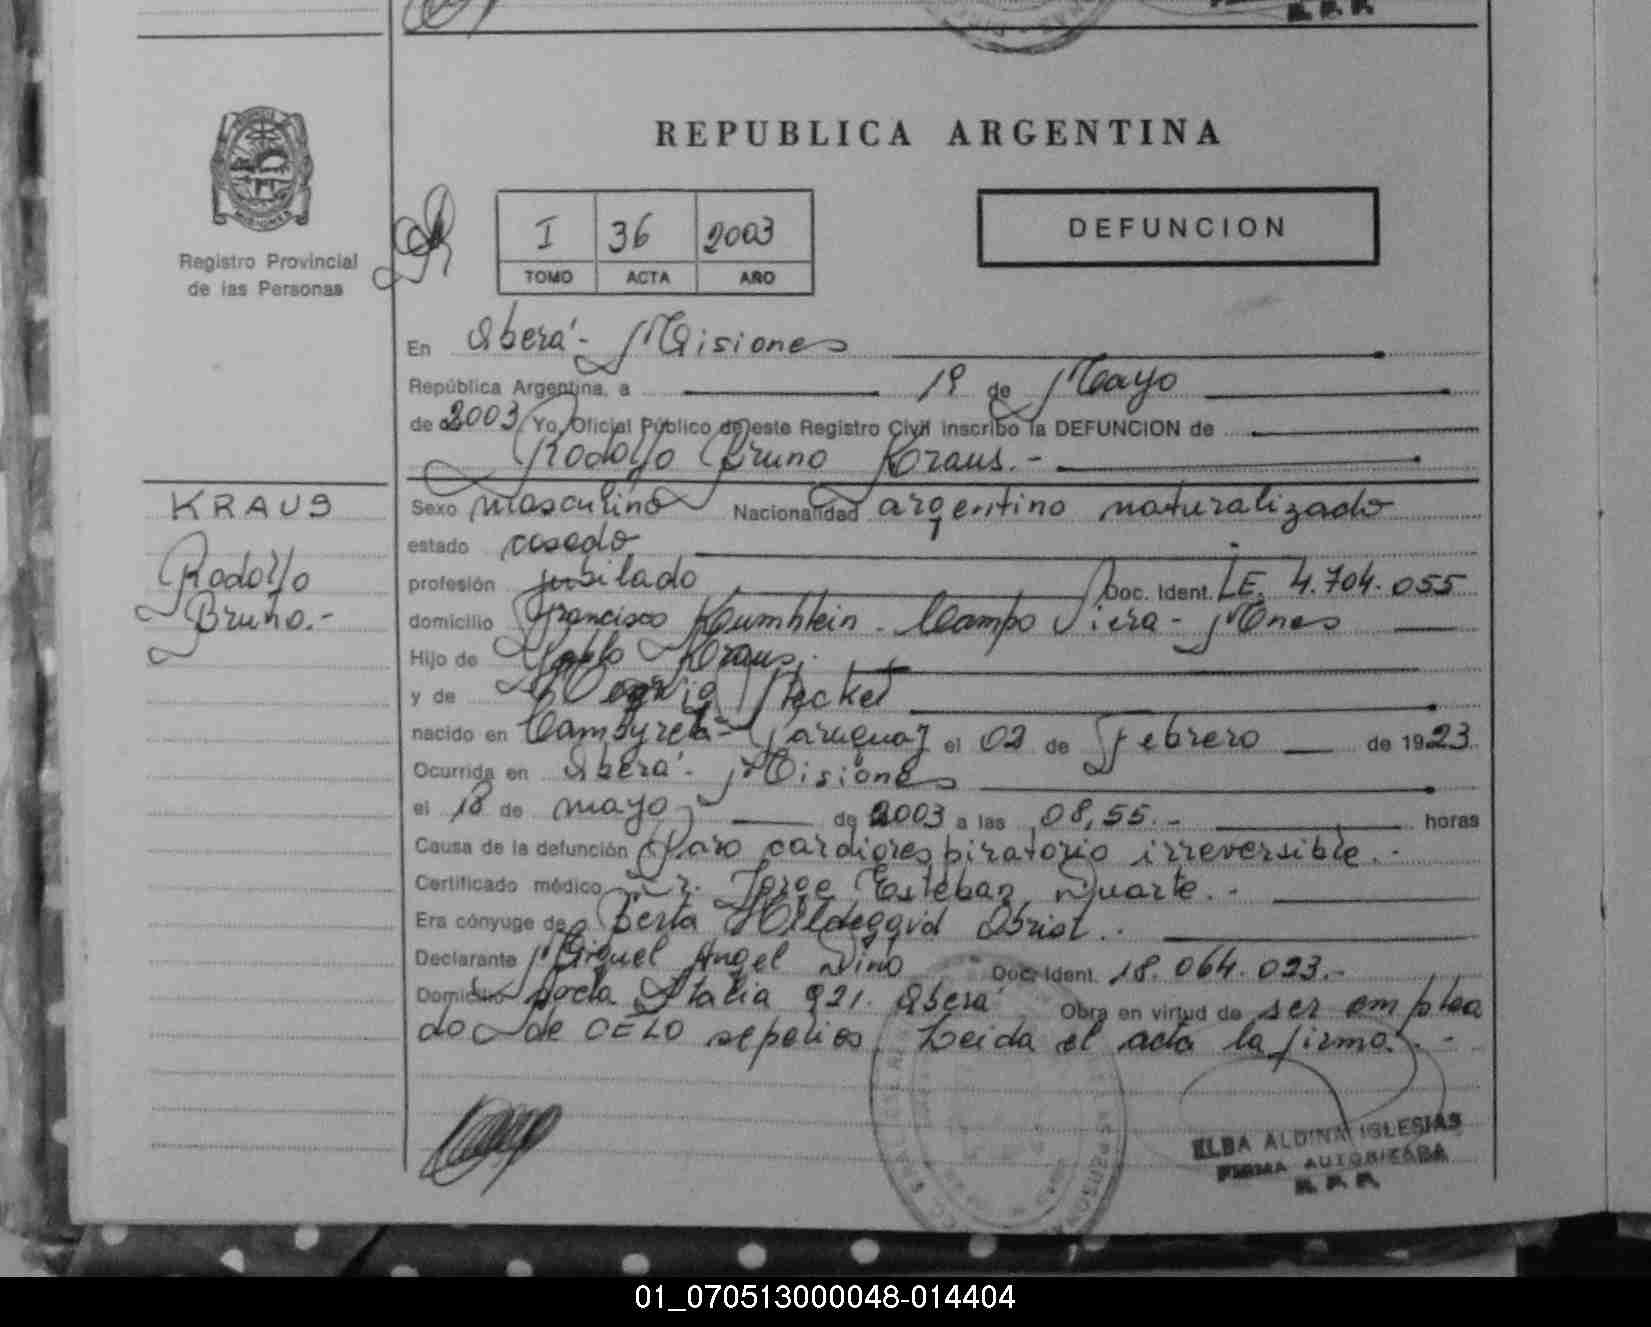 REPUBLICA ARGENTINA
Registro Provincial
de las Personas
I 36 2003
TOMO ACTA AÑO
DEFUNCION
En Oberá - Misiones
República Argentina, a 19 de Mayo
de 2003 Yo, Oficial Público de este Registro Civil inscribo la DEFUNCION de
Rodolfo Bruno Kraus.-
KRAUS
Rodolfo
Bruno.-
Sexo masculino Nacionalidad argentino naturalizado
estado casado
profesión jubilado Doc. Ident. LE. 4.704.055
domicilio Francisco Kumhlein - Campo Viera - Mnes
Hijo de Pablo Kraus.
y de Stecket
nacido en Cambyretá - Paraguay el 02 de Febrero de 1923
Ocurrida en Oberá - Misiones
el 18 de mayo de 2003 a las 08,55.- horas
Causa de la defunción Paro cardiorespiratorio irreversible.-
Certificado médico Dr. Jorge Esteban Duarte.-
Era cónyuge de Berta Hildegard Obrist.-
Declarante Miguel Angel Pino Doc. Ident. 18.064.023.-
Domicilio Italia 921. Oberá Obra en virtud de ser emplea
do de CELO sepelios. Leida el acta la firma.-
ELBA ALDINA IGLESIAS
FIRMA AUTORIZADA
R. P. P.
01_070513000048-014404